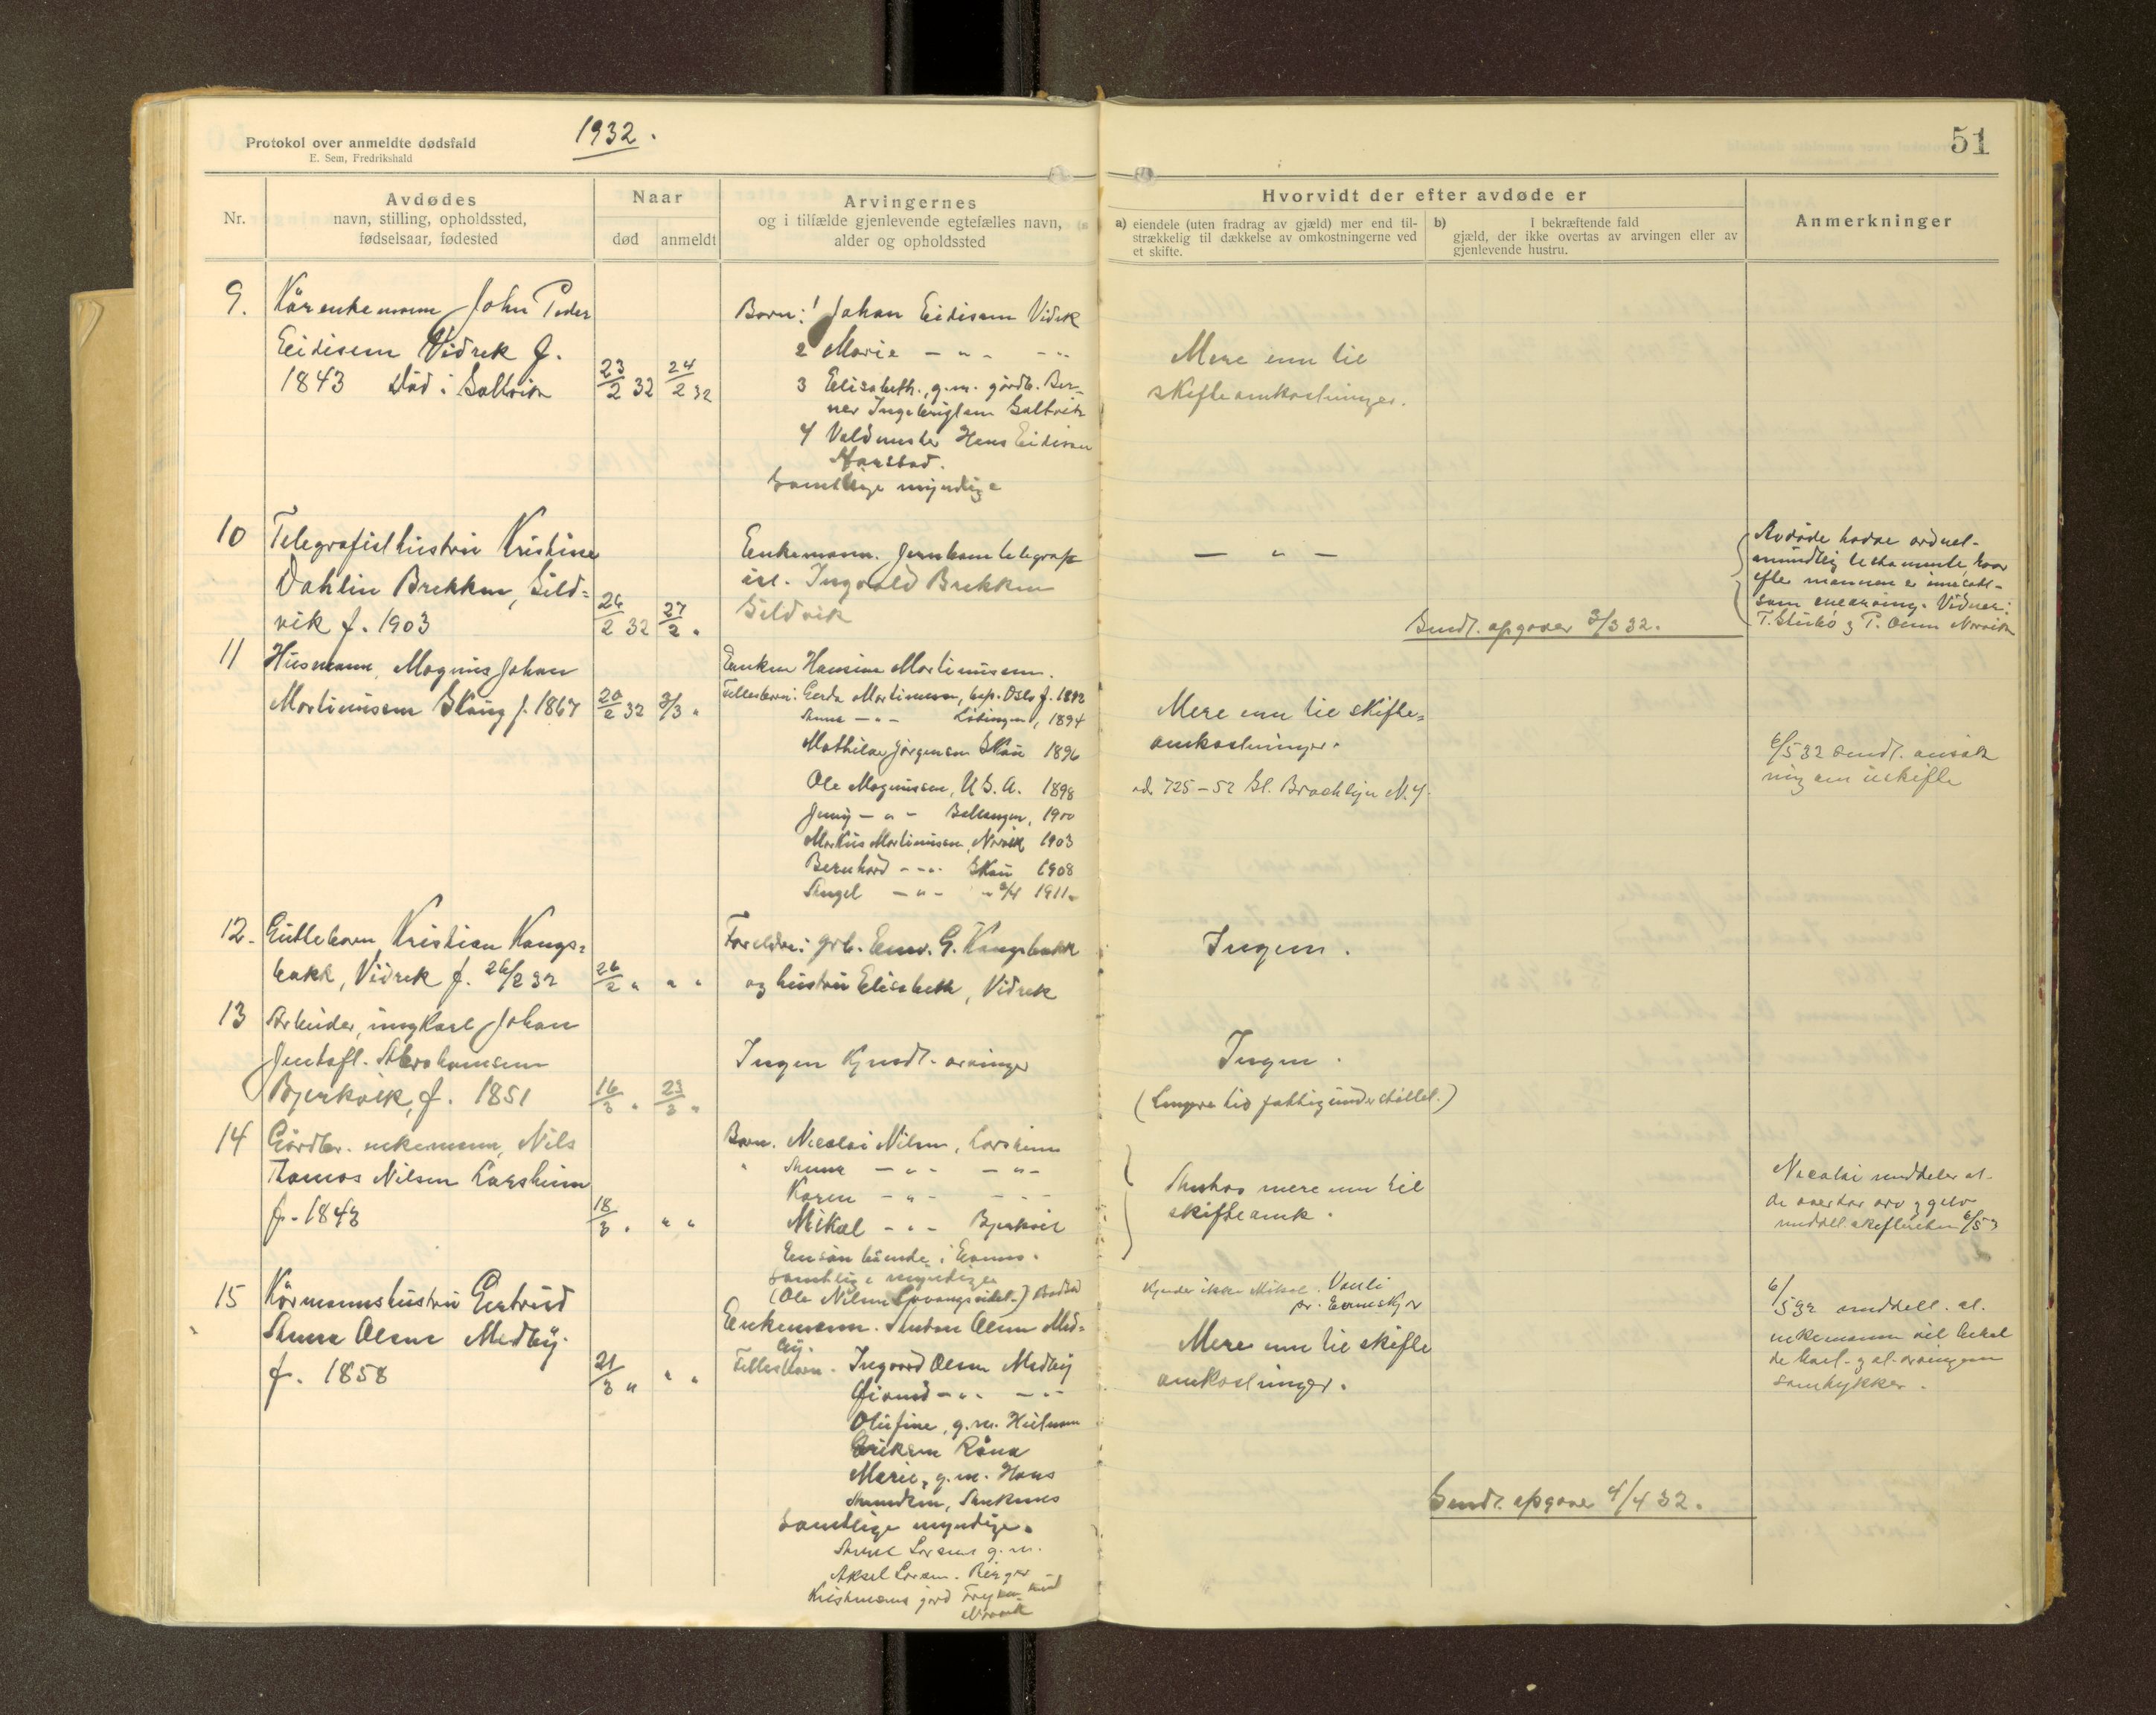 Protokol over anmeldte dødsfald
E. Sem, Fredrikshald
1932.
51
Nr.
Avdødes
navn, stilling, opholdssted,
fødselsaar, fødested
Naar
død
anmeldt
Arvingernes
og i tilfælde gjenlevende egtefælles navn,
alder og opholdssted
Hvorvidt der efter avdøde er
a) eiendele (uten fradrag av gjæld) mer end til-
strækkelig til dækkelse av omkostningerne ved
et skifte.
b) I bekræftende fald
gjæld, der ikke overtas av arvingen eller av
gjenlevende hustru.
Anmerkninger
9. Kårenkemann John Peder
Eidissen Vidrek f.
1843 Död i Saltvik
23/2 32 24/2 32
Barn: 1 Johan Eidissen Vidrek
2 Marie — " — — " —
3 Elisabeth, g.m. gårdb. Ber-
ner Ingebrigtsen Saltvik
4 Valdemster Hans Eidissen
Harstad.
Samtlige myndige
Mere enn til
skifteomkostninger.
10 Telegrafisthustru Kristine
Dahlin Brekken, Sild=
vik f. 1903
26/2 32 27/2 "
Enkemann. Jernbanetelegraf-
ist. Ingvald Brekken
Sildvik
— " —
Avdøde hadde ordnet
mundtlig testamente, hvor
efter mannen er innsatt
som enearving. Vidner:
T. P. Narvik
Sendt. opgaver 3/3 32.
11 Husmann, Magnus Johan
Martinussen Skaug f. 1867
20/2 32 3/3 "
Enken Hansine Martinussen.
Fellesbarn: Gerda Martinussen, Oslo f. 1892
Anna — " — Lödingen, 1894
Mathilde Jörgensen Skau 1896
Ole Magnussen, U.S.A. 1898
Jenny — " — Ballangen, 1900
Markus Martinussen, Narvik 1903
Bernhard — " — Skau 1908
Angel — " — 1911.
Mere enn til skifte=
omkostninger.
ad. 725 – 52 St. Brooklyn N.Y.
6/5 32 sendt. ansök
ning om uskifte
12. Guttebarn Kristian Kongs=
bakk, Vidrek f. 26/2 32
26/2 " " "
Foreldre: grb. G. Kongsbakk
og hustru Elisabeth, Vidrek
Ingen.
13 Arbeider, ungkarl Johan
Abrahamsen
Bjerkvik, f. 1851
16/3 " 23/3 "
Ingen kjendt. arvinger
Ingen.
(Lengere tid fattigunderstöttet.)
14 Gårdbr. enkemann, Nils
Thomas Nilsen Larsheim
f. 1843
18/3 " " "
Barn. Nicolai Nilsen, Larsheim
" Anna — " — — " —
Karen — " — — " —
Mikal — " — Bjerkvik
En sön boende i Evenes.
Samtlige myndige
(Ole Nilsen )
Anslås mere enn til
skifteomk.
Kjender ikke Mikal.
Nicolai meddeler at
de overtar arv og gjeld
meddelt skifteretten 6/5
15 Kårmannshustru Gertrud
Anna Olsen Medby.
f. 1858
21/3 " " "
Enkemann. Anton Olsen Med=
by.
Fellesbarn. Ingvard Olsen Medby
Öivind — " — — " —
Olufine, g.m. Hilmar
Eriksen Råna
Marie, g.m. Hans
Amundsen, Ankenes
Samtlige myndige.
Anna Larsen g.m.
Aksel Larsen.
Narvik
Mere enn til skifte
omkostninger.
6/5 32 meddelt. at.
enkemannen vil beholde
de boet - og at arvingene
samtykker.
Sendt. opgaver 4/4 32.